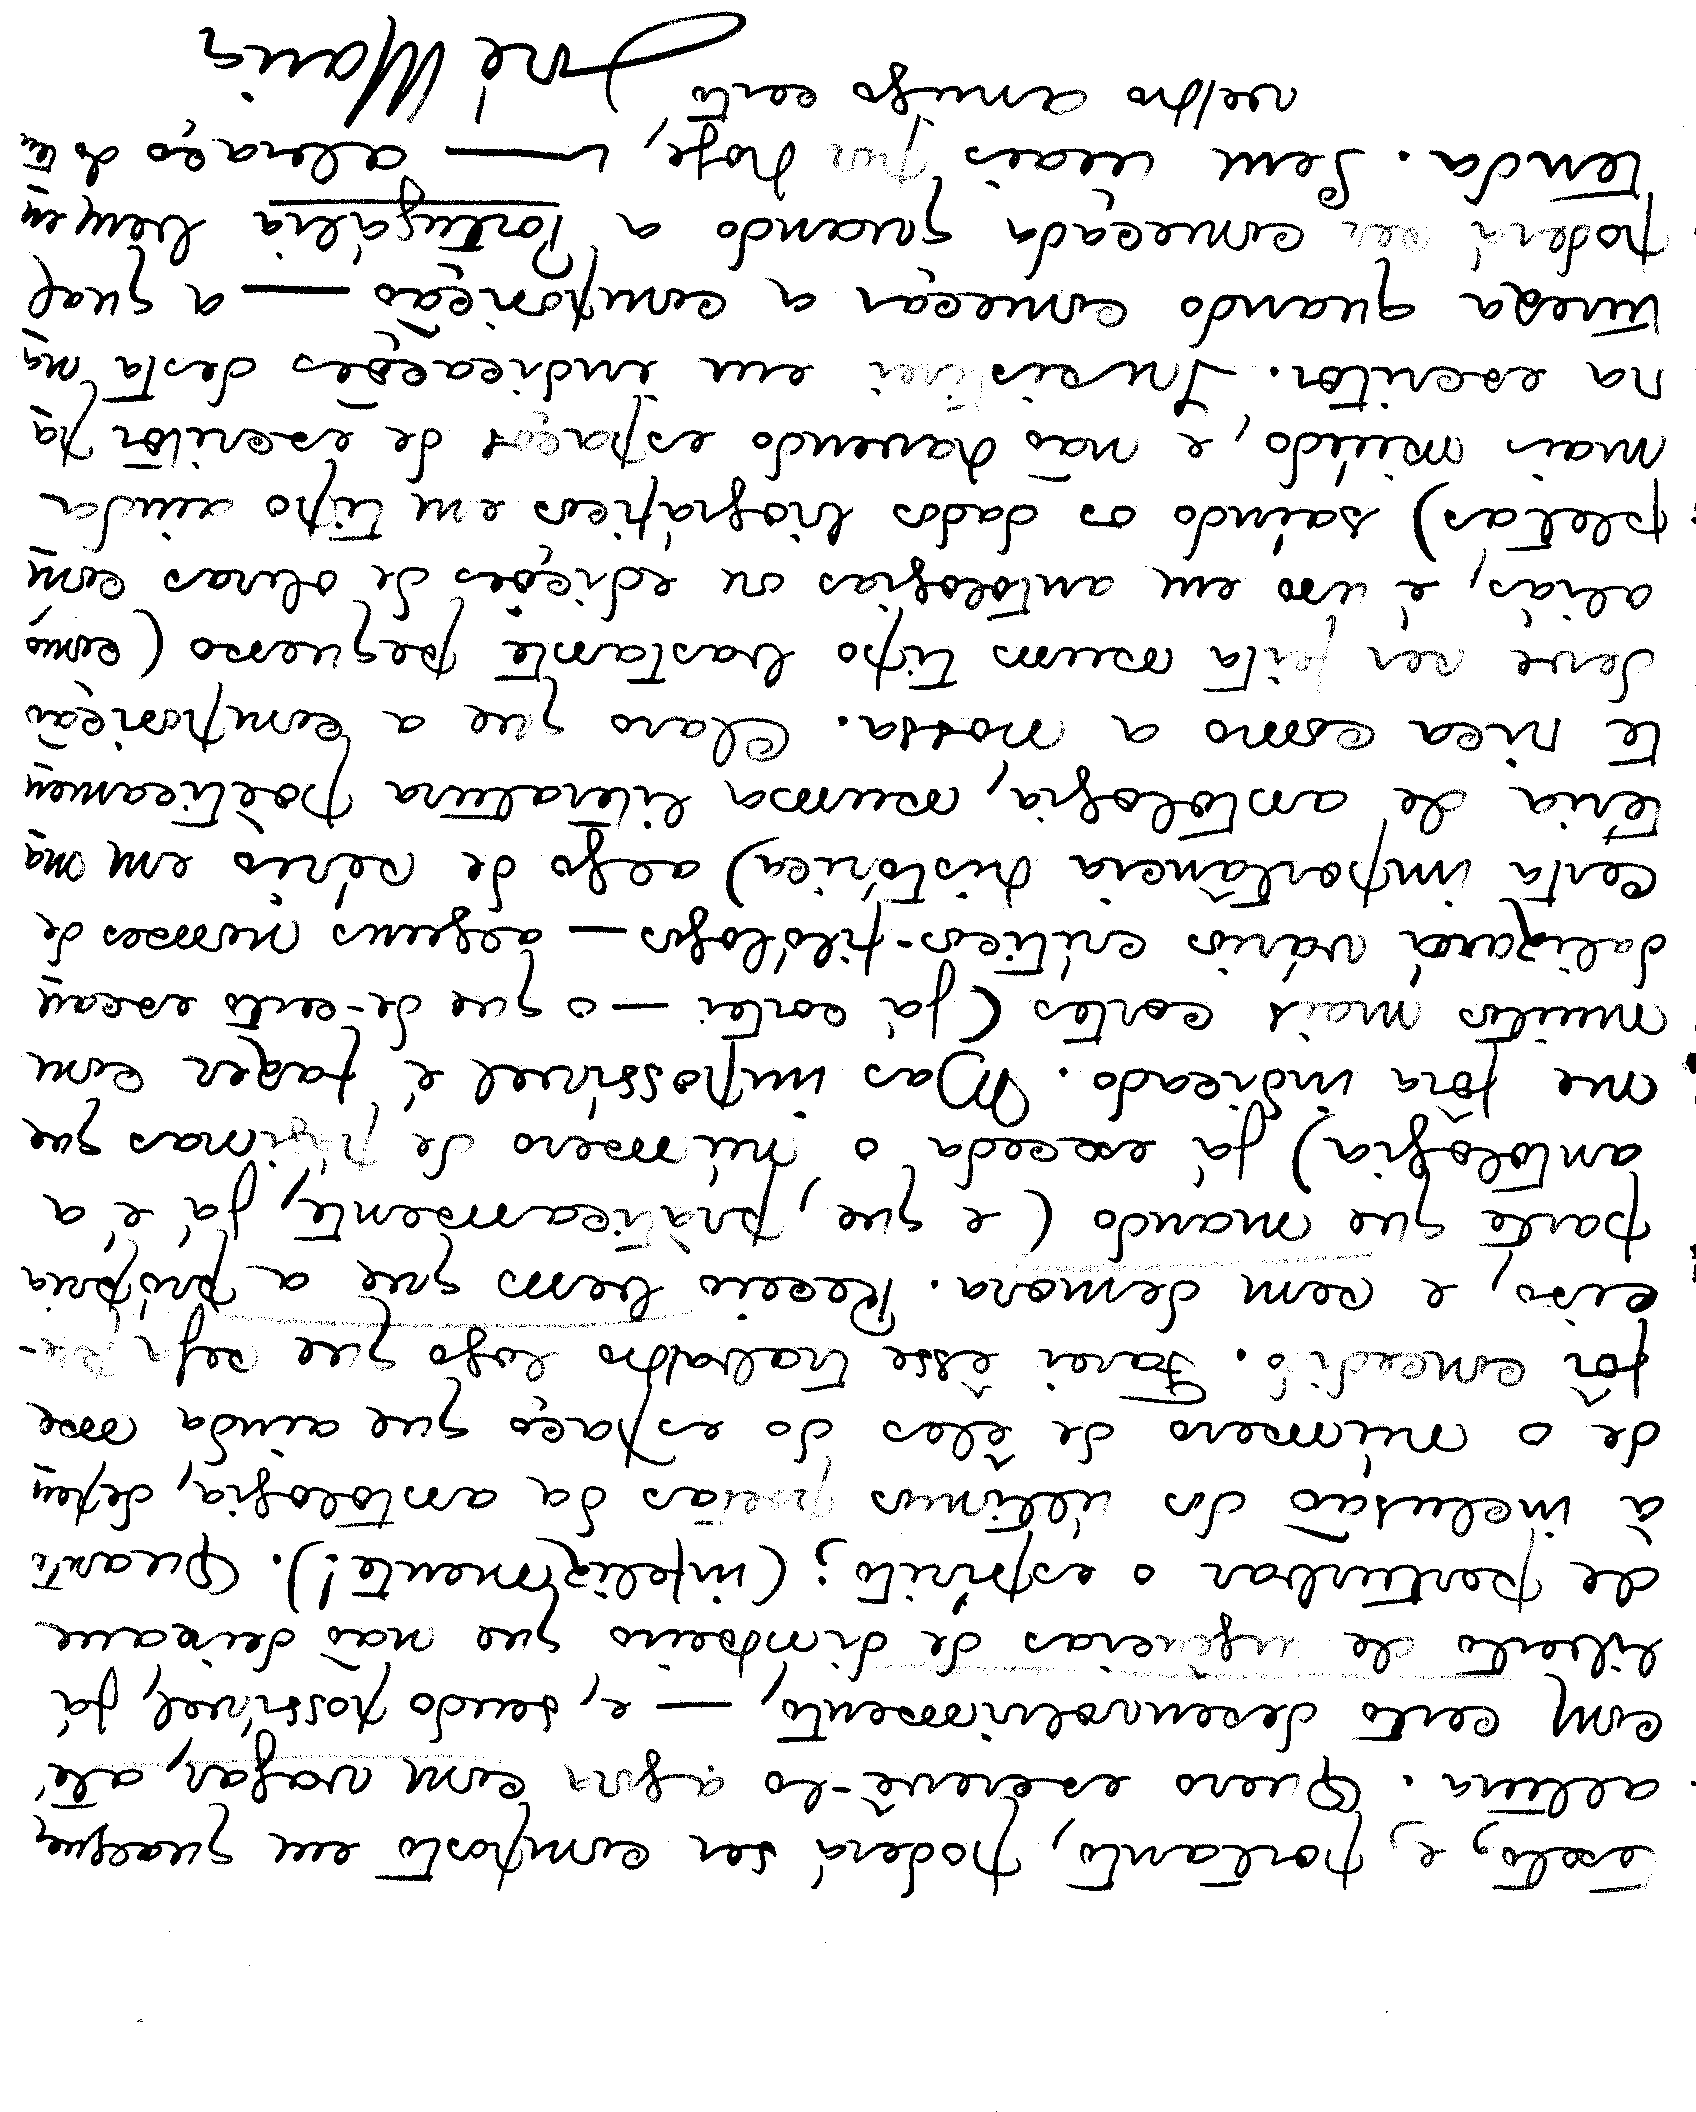 texto, e, portanto, poderá ser composto em qualquer
altura. Quero escrevê-lo agora com vagar, até
com certo desenvolvimento, — e, sendo possível, já
liberto de urgências de dinheiro que não deixam
de perturbar o espírito; (infelizmente!). Quanto
à inclusão dos últimos poetas da antologia, depen
de o número de êles do espaço que ainda me
fôr concedido. Farei êsse trabalho logo que seja pre-
ciso, e sem demora. Receio bem que a própria
parte que mando (e que, pràticamente, já é a
antologia) já exceda o número de páginas que
me fôra indicado. Mas impossível é fazer com
muitos mais cortes (já cortei — o que de-certo escan
dalizará vários críticos-filólogos — alguns nomes de
certa importância histórica) algo de sério em ma
téria de antologia, numa literatura poèticamen
te rica como a nossa. Claro que a composição
deve ser feita num tipo bastante pequeno (como,
aliás, é uso em antologias ou edições de obras com
pletas) saindo os dados biográficos em tipo ainda
mais miúdo, e não havendo espaços de escritor pa
ra escritor. Insistirei em indicações desta na
tureza quando começar a composição — a qual
poderá ser começada quando a Portugália bem en
tenda. Sem mais por hoje, — abraço do
velho amigo certo
José Régio